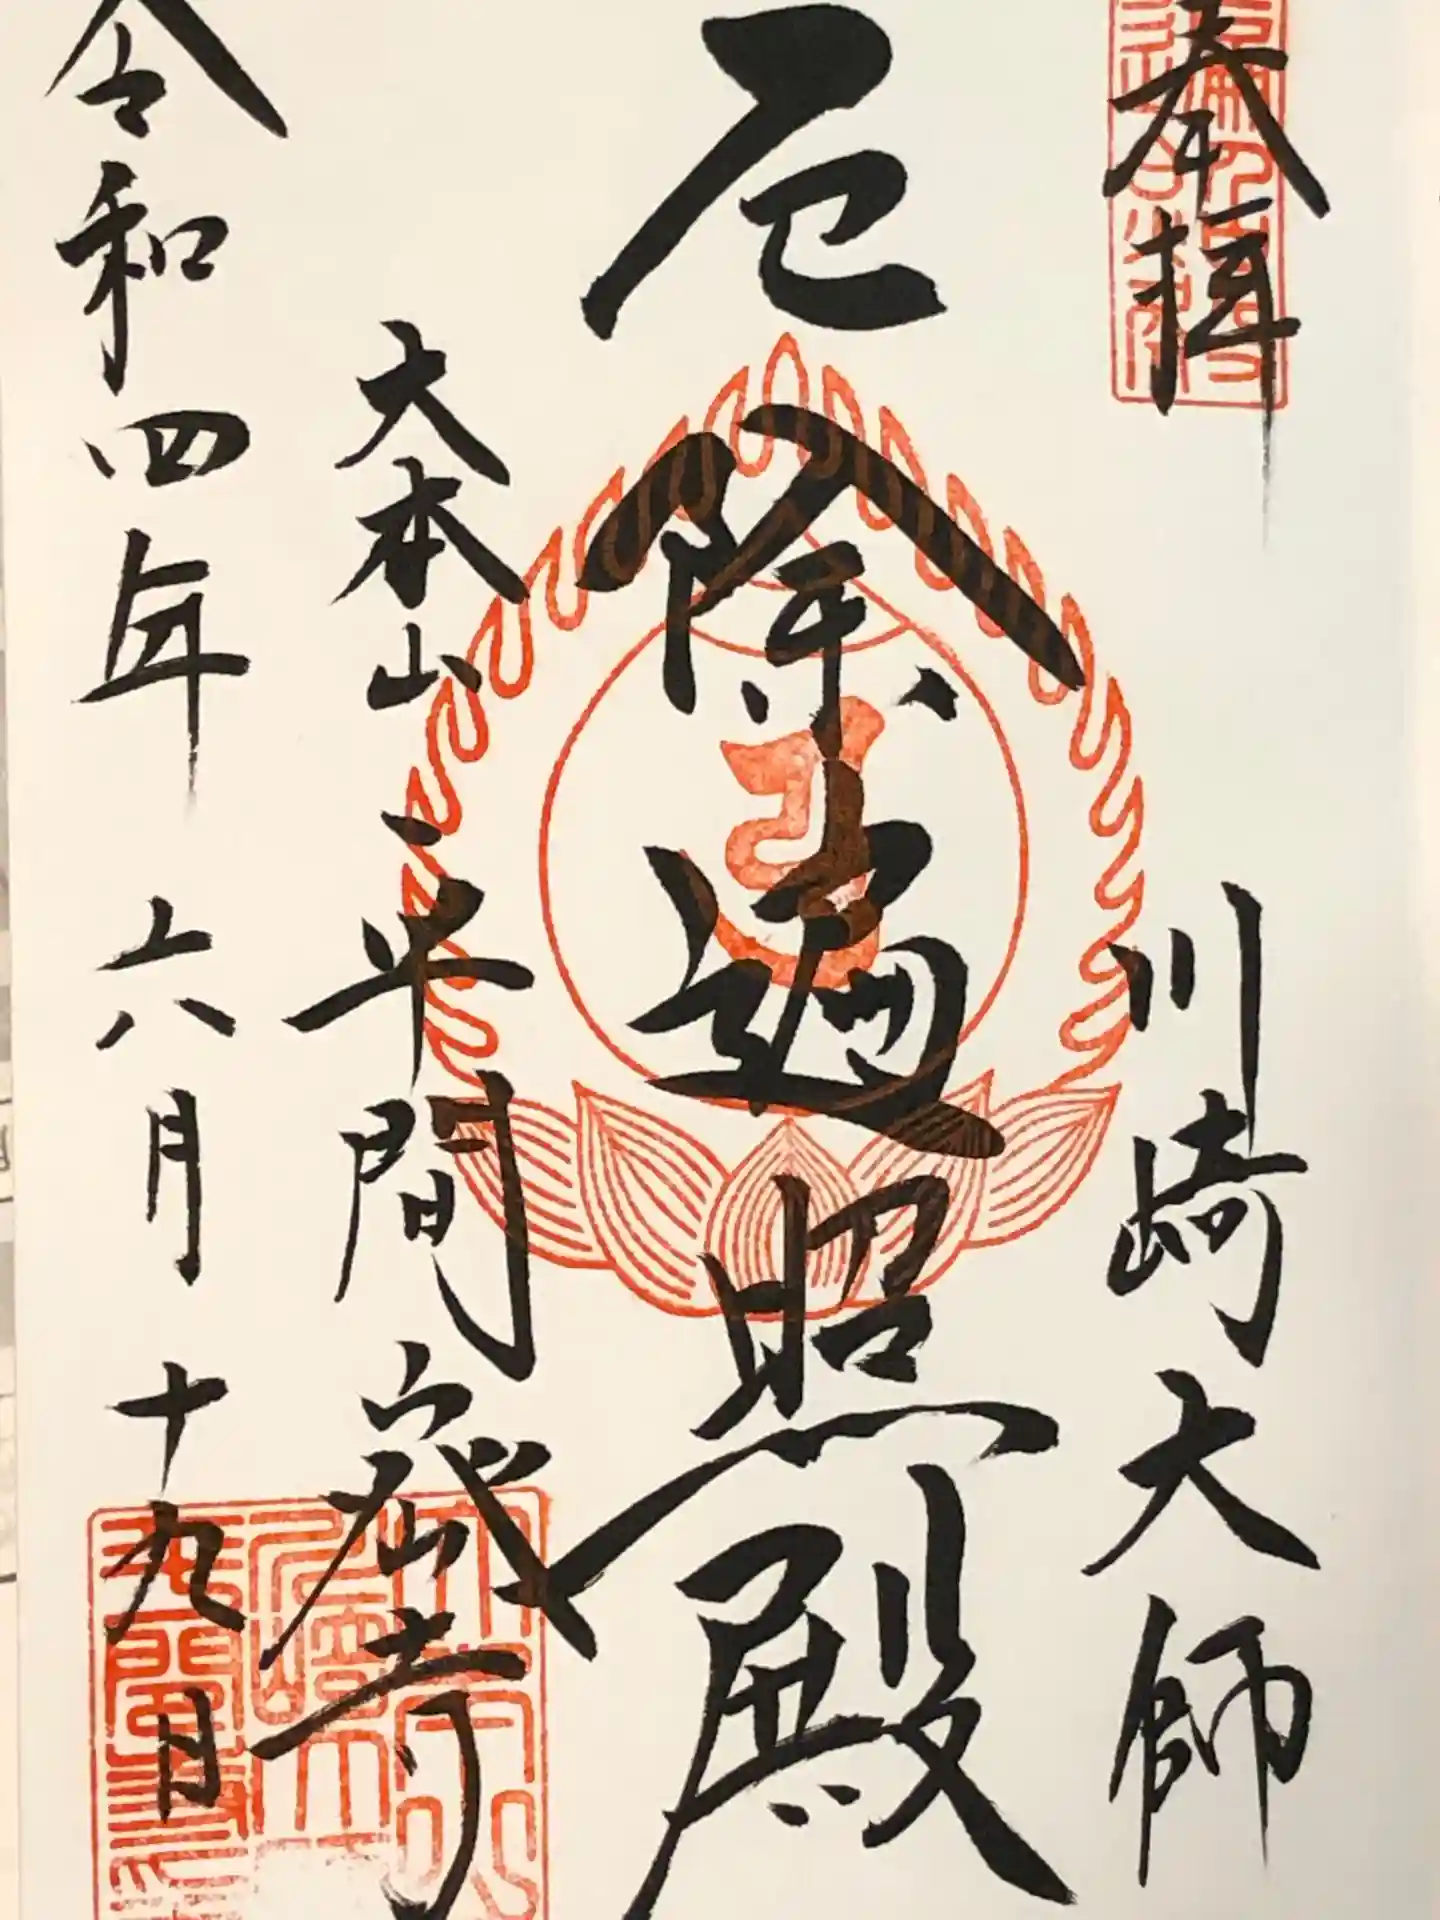 奉拝
川崎大師
厄除遍照殿
大本山
平間寺
令和四年六月十九日